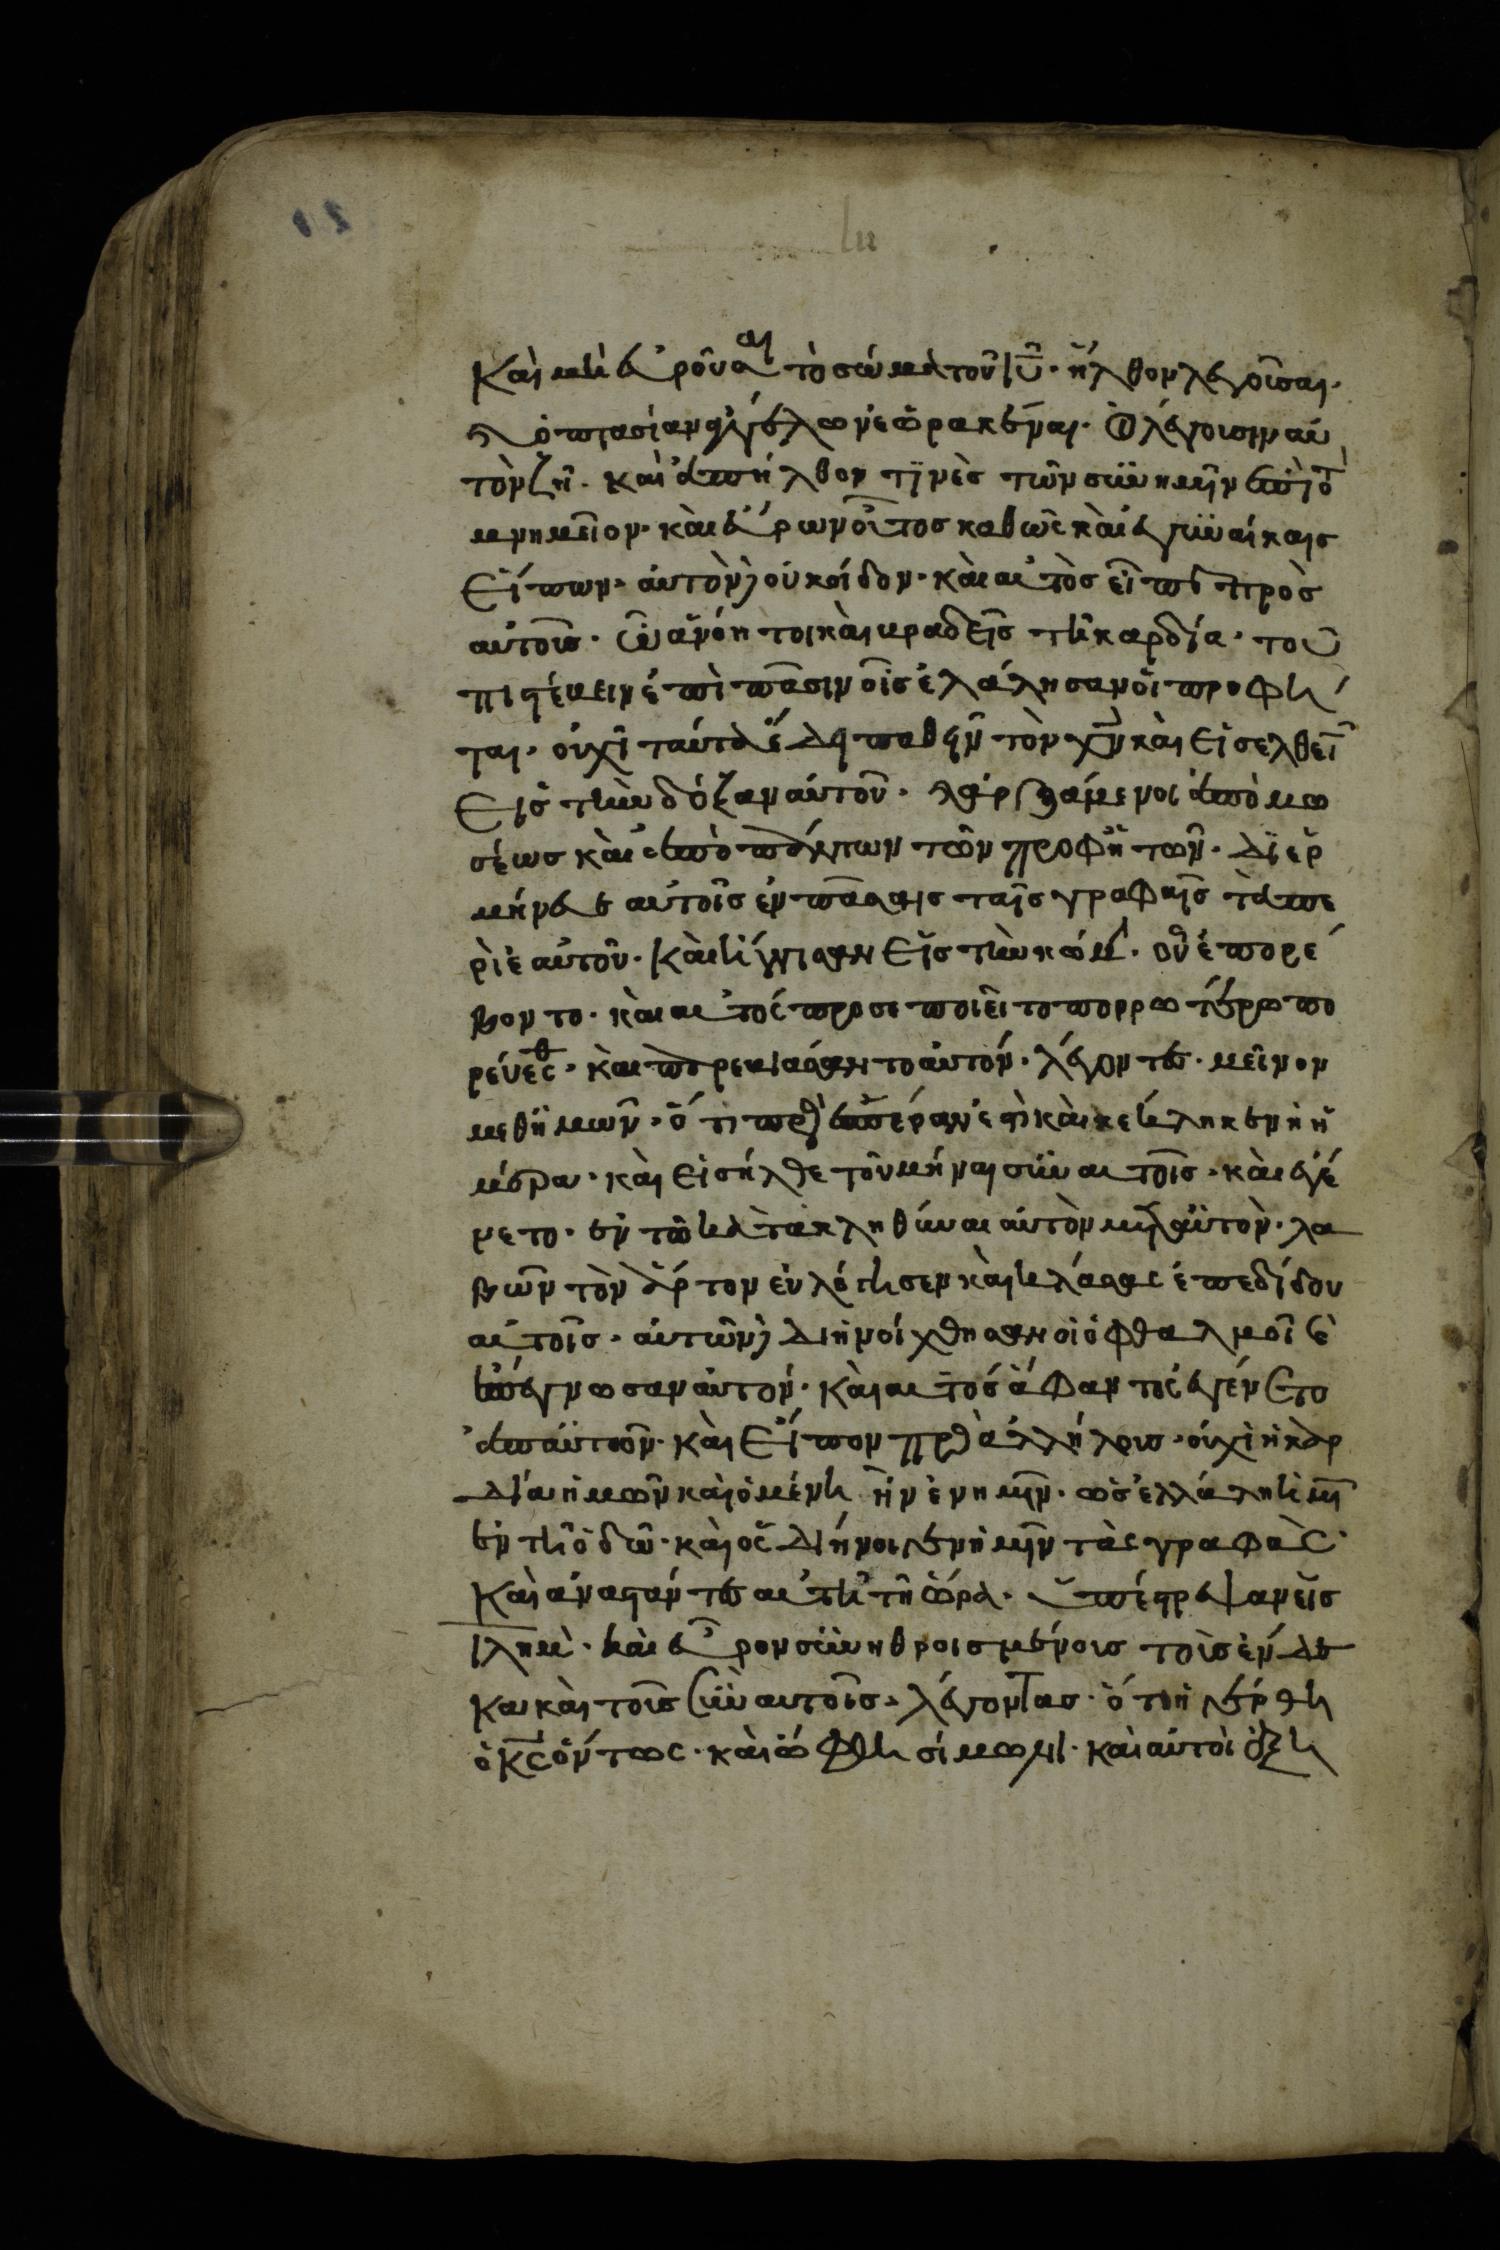 Καὶ μὴ εὑροῦσαι τὸ σώμα τοῦ ιυ. ἤλθον λέγουσαι.
κ ὀπτασίαν ἀγγέλων ἑωρακέναι. οἳ λέγουσιν αὐ
τὸν ζῆν. καὶ ἀπήλθον τινὲς τῶν σὺν ἡμῖν ἐπὶ τὸ
μνημεῖον. καὶ εὗρων οὕτος καθῶς καὶ ἑ γυναίκαις
εἴπων. αὐτὸν δ οὐκ οἶδον. καὶ αὐτὸς εἶπε πρὸς
αὐτοῖς. ὦ ἀνόητοι καὶ βραδεῖς τῆ καρδία. τοῦ
πιστέυειν ἐπὶ πᾶσιν οἷς ἐλάλησαν οἱ προφῆ
ται. οὐχὶ ταύτα ἔδει παθεῖν τὸν χν καὶ εἰσελθεῖν
εἰς τὴν δόξαν αὐτοῦ. κ ἀρξάμενος ἀπὸ μω
σέως καὶ ἀπὸ πάντων τῶν προφητῶν. διερ
μήνευε αὐτοῖς ἐν πάσαις ταῖς γραφαῖς τὰ πε
ρὶ ἑαυτοῦ. Καὶ ἤγγισαν εἰς τὴν κώμ. οὗ ἐπορέ
βοντο. καὶ αὐτὸς προσεποιεῖτο πορρωτέρω πο
ρέυεσθ. καὶ παρεβιάσαντο αὐτόν. λέγοντες. μεῖνον
μεθ ἡμῶν. ὅτι πρὸς ἐσπέραν ἐστὶ καὶ κέκληκεν ἡ ἡ
μέρα. καὶ εἰσήλθε τοῦ μήναι σὺν αὐτοῖς. καὶ ἐγέ
νετο. ἐν τῶ κατακληθῆναι αὐτὸν μετ αὐτὸν. λα
βῶν τὸν ἄρτον ἐυλόγησεν καὶ κλάσας ἐπεδίδου
αὐτοῖς. αὐτῶν δ διηνοίχθησαν οἱ ὀφθαλμοὶ κ
ἐπέγνωσαν αὐτόν. καὶ αὐτὸς ἄφαντος ἐγένετο
ἀπ αὐτῶν. καὶ εἴπον πρὸς ἀλλήλους. οὐχὶ ἡ καρ
δία ἡμῶν καιομένη ἦν ἐν ἡμῖν. ὡς ἐλλάλη ἡμῖν
ἐν τῆ ὁδῶ. καὶ ὡς διήνοιγεν ἡμῖν τὰς γραφὰς.
Καὶ ἀναστάντες αὐτῆ τῆ ὥρα. ὑπέστρεψαν εἰς
ιλημ. καὶ εὗρον συνηθροισμένοις τοὶς ἕνδε
κα καὶ τοῖς σὺν αὐτοῖς. λέγοντας. ὅτι ἠγέρθη
ὁ κς ὄντως. καὶ ὤφθη σίμωνι. καὶ αὐτοὶ ἐξη